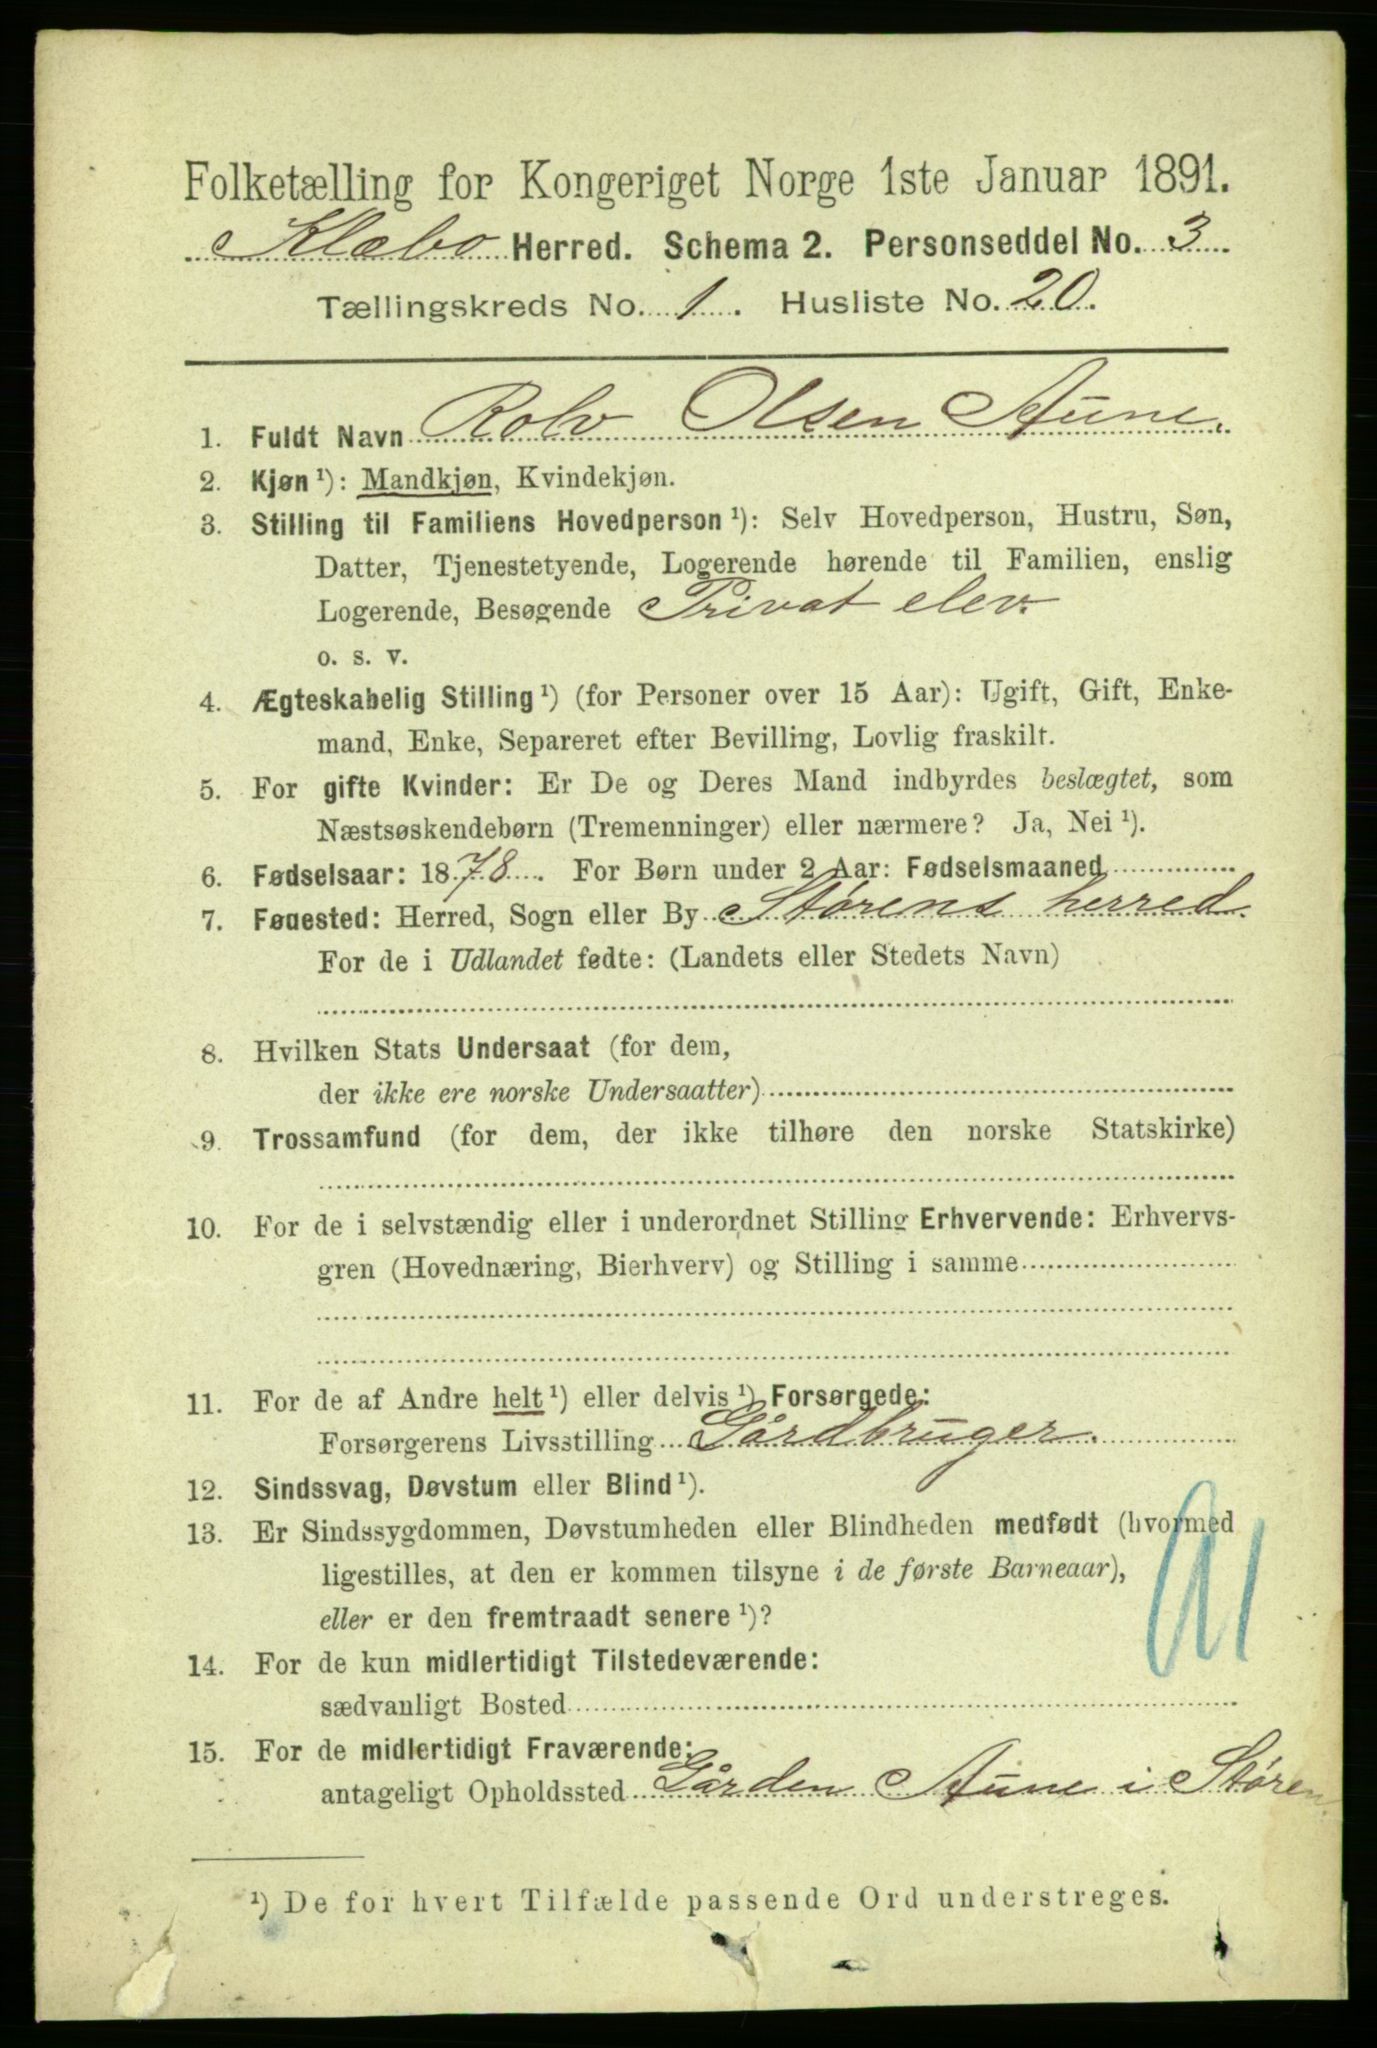 Folketælling for Kongeriget Norge 1ste Januar 1891.
Klæbo Herred. Schema 2. Personseddel No. 3
Tællingskreds No. 1. Husliste No. 20.
1. Fuldt Navn Rolv Olsen Aune.
2. Kjøn ¹): Mandkjøn, Kvindekjøn.
3. Stilling til Familiens Hovedperson ¹): Selv Hovedperson, Hustru, Søn,
Datter, Tjenestetyende, Logerende hørende til Familien, enslig
Logerende, Besøgende Privat elev.
o. s. v.
4. Ægteskabelig Stilling ¹) (for Personer over 15 Aar): Ugift, Gift, Enke-
mand, Enke, Separeret efter Bevilling, Lovlig fraskilt.
5. For gifte Kvinder: Er De og Deres Mand indbyrdes beslægtet, som
Næstsøskendebørn (Tremenninger) eller nærmere? Ja, Nei ¹).
6. Fødselsaar: 1878. For Børn under 2 Aar: Fødselsmaaned
7. Fødested: Herred, Sogn eller By Størens herred.
For de i Udlandet fødte: (Landets eller Stedets Navn)
8. Hvilken Stats Undersaat (for dem,
der ikke ere norske Undersaatter)
9. Trossamfund (for dem, der ikke tilhøre den norske Statskirke)
10. For de i selvstændig eller i underordnet Stilling Erhvervende: Erhvervs-
gren (Hovednæring, Bierhverv) og Stilling i samme
11. For de af Andre helt ¹) eller delvis ¹) Forsørgede:
Forsørgerens Livsstilling Gårdbruger.
12. Sindssvag, Døvstum eller Blind ¹).
13. Er Sindssygdommen, Døvstumheden eller Blindheden medfødt (hvormed
ligestilles, at den er kommen tilsyne i de første Barneaar),
eller er den fremtraadt senere ¹)?
14. For de kun midlertidigt Tilstedeværende:
sædvanligt Bosted
15. For de midlertidigt Fraværende:
antageligt Opholdssted Gården Aune i Støren
¹) De for hvert Tilfælde passende Ord understreges.